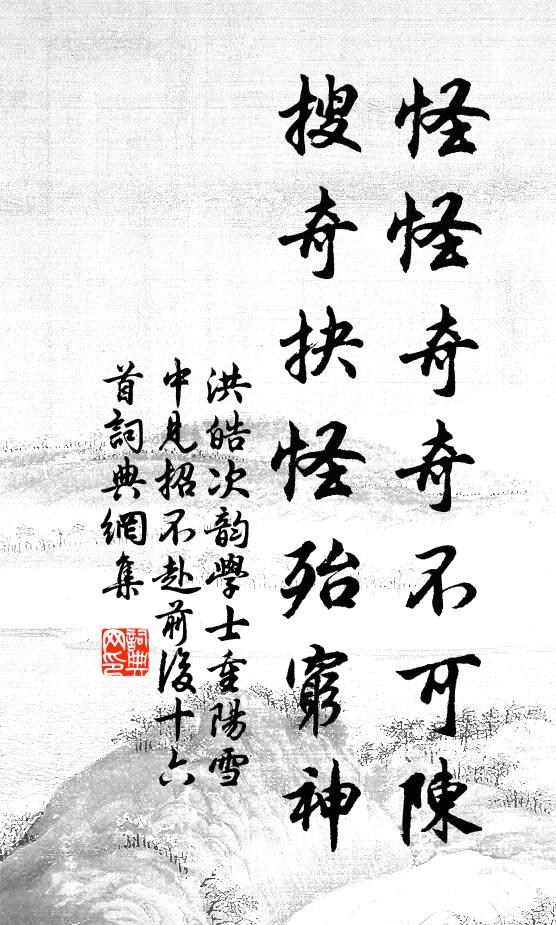 怪怪奇奇不可陳
搜奇抉怪殆窮神
洪皓次韵學士重陽雪
中見招不赴前後十六
首詞典網集
詞典
网印